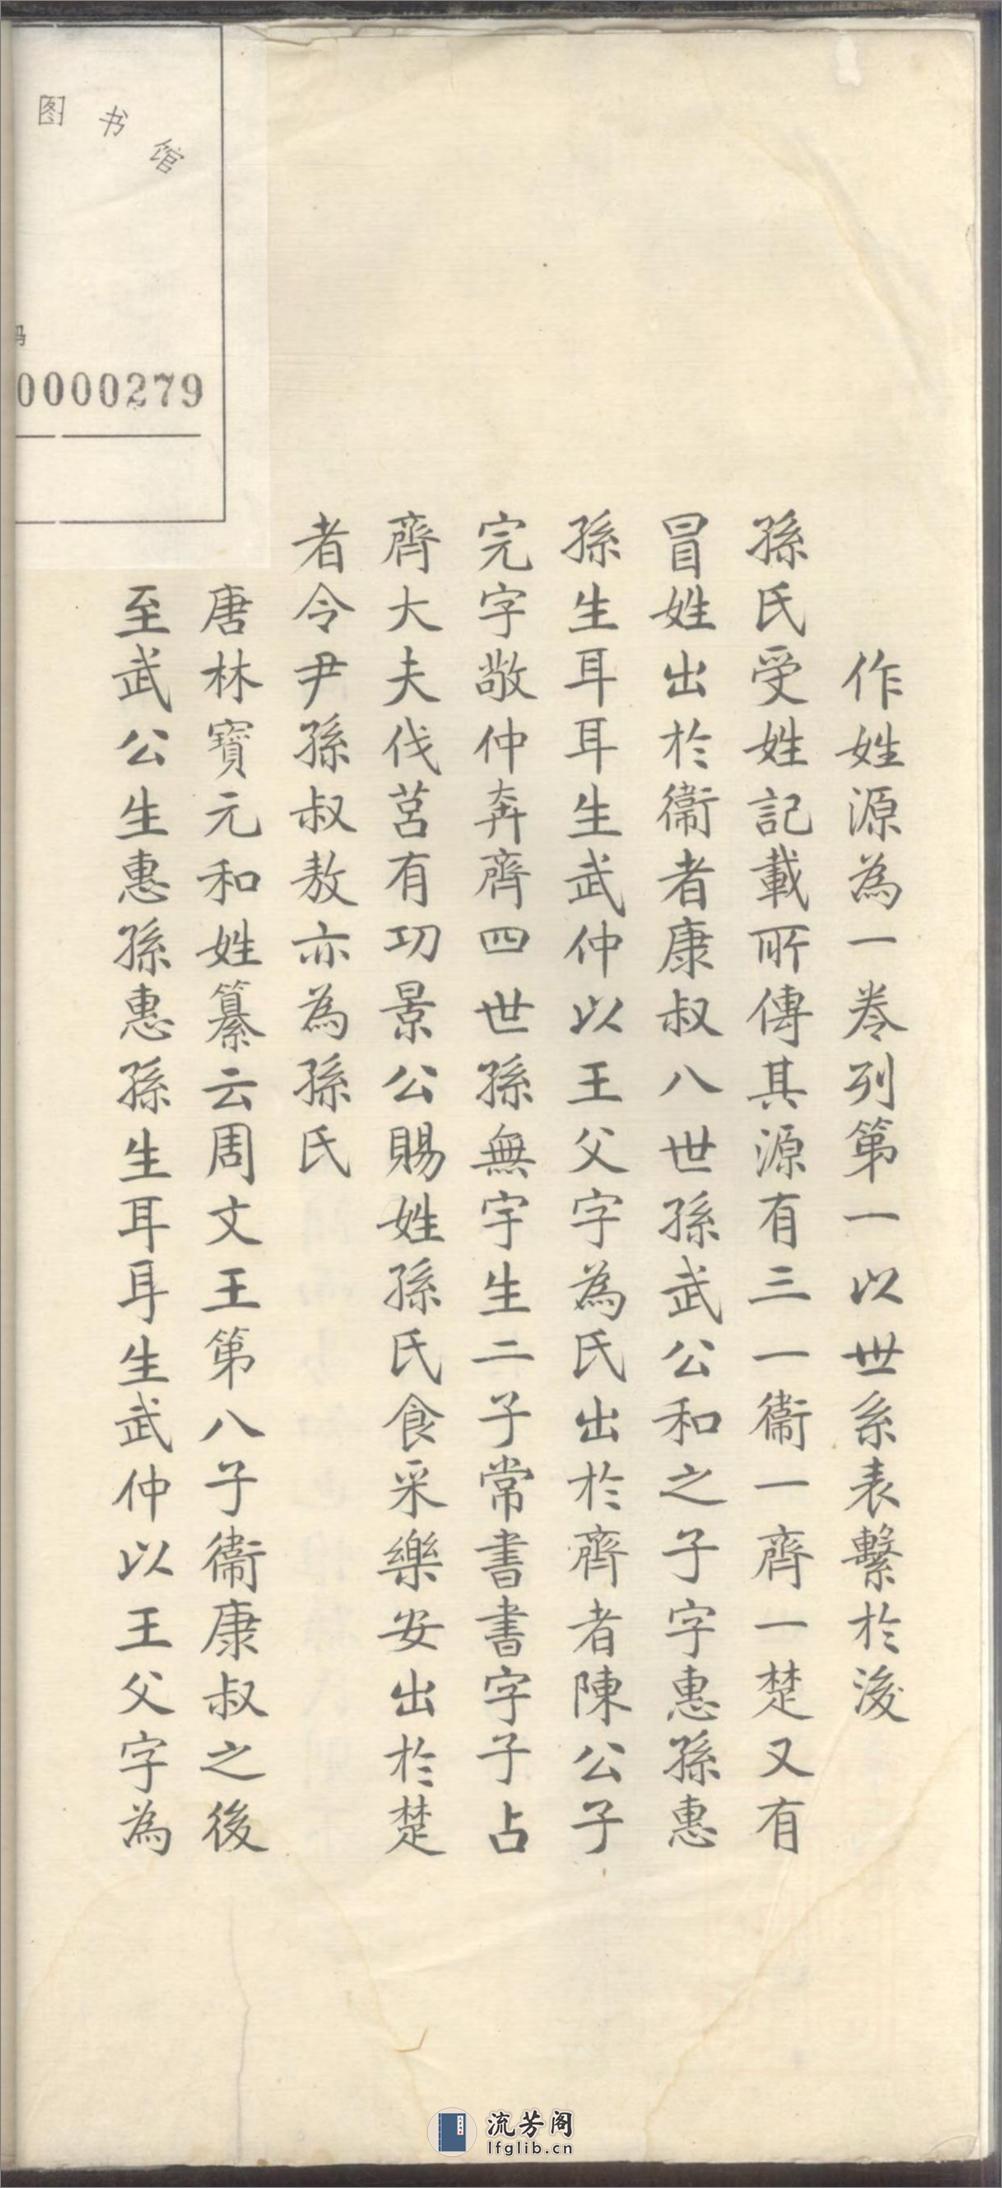 作姓源為一卷列第一以世系表繫於後
孫氏受姓記載所傳其源有三一衞一齊一楚又有
冒姓出於衞者康叔八世孫武公和之子字惠孫惠
孫生耳耳生武仲以王父字為氏出於齊者陳公子
完字敬仲奔齊四世孫無宇生二子常書書字子占
齊大夫伐莒有功景公賜姓孫氏食采樂安出於楚
者令尹孫叔敖亦為孫氏
唐林寶元和姓纂云周文王第八子衞康叔之後
至武公生惠孫惠孫生耳耳生武仲以王父字為
图书馆
码
0000279
流芳阁
lfglib.cn